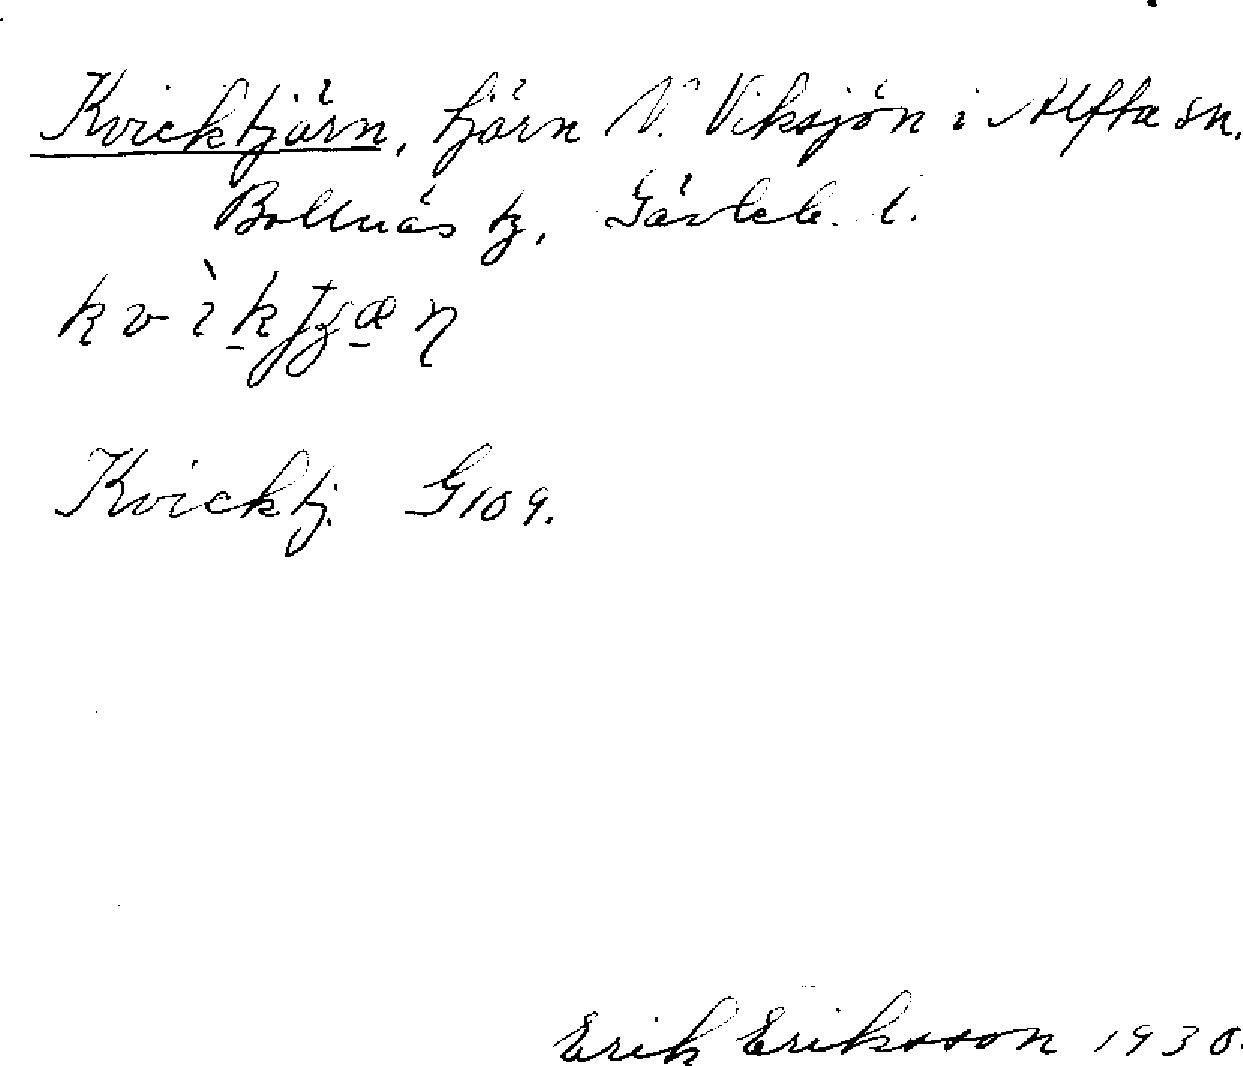 Kvicktjärn, tjärn N. Viksjön i Alfta sn.
Bollnäs tg, Gävleb. l.
Kvicktj. G109.
Erik Eriksson 1930.